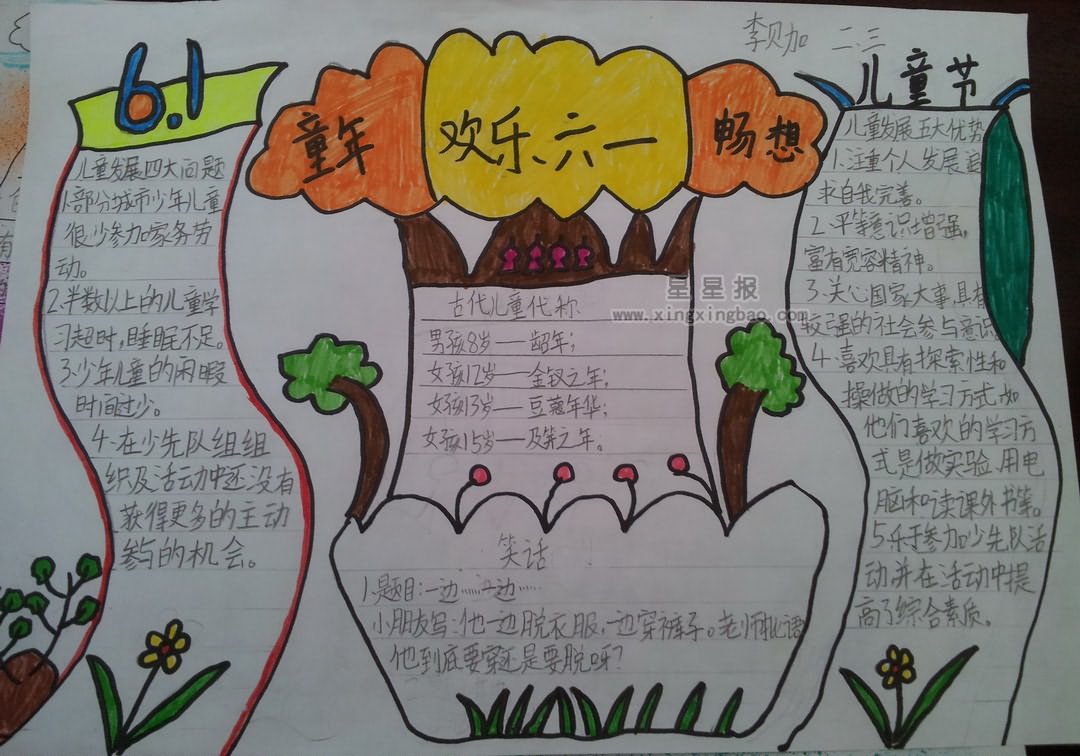 李贝加 二三
6.1
童年
欢乐、六一
畅想
儿童节
儿童发展四大问题
1.部分城市少年儿童
很少参加家务劳
动。
2.半数以上的儿童学
习超时,睡眠不足。
3.少年儿童的闲暇
时间过少。
4.在少先队组组
织及活动中还没有
获得更多的主动
参与的机会。
星星报
www.xingxingbao.com
古代儿童代称
男孩8岁——龆年;
女孩12岁——金钗之年;
女孩13岁——豆蔻年华;
女孩15岁——及笄之年。
笑话
1.题目:一边……一边……
小朋友写:他一边脱衣服,一边穿裤子。老师批语
他到底要穿还是要脱呀?
儿童发展五大优势
1.注重个人发展追
求自我完善。
2.平等意识增强,
富有宽容精神。
3.关心国家大事,具有
较强的社会参与意识
4.喜欢具有探索性和
操做的学习方式如
他们喜欢的学习方
式是做实验、用电
脑和读课外书等。
5.乐于参加少先队活
动,并在活动中提
高了综合素质。